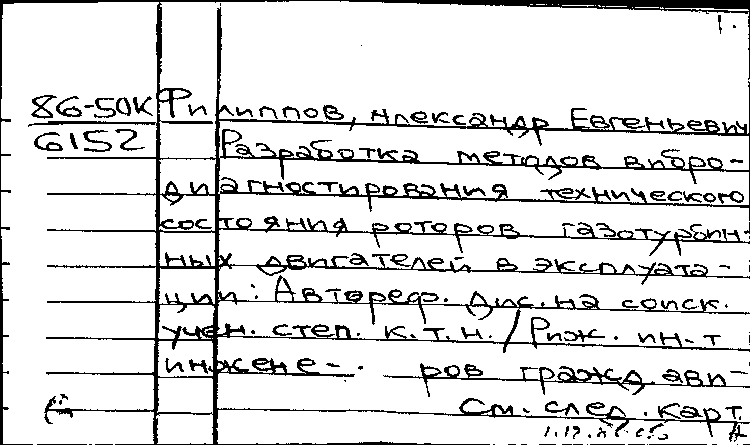 1.
86-50К Филиппов, Александр Евгеньевич
6152 Разработка методов вибро-
диагностирования технического
состояния роторов газотурбин-
ных двигателей в эксплуата-
ции: Автореф. дис. на соиск.
учен. степ. к.т.н. / Риж. ин-т
инжене-. ров гражд. ави-
См. след. карт.